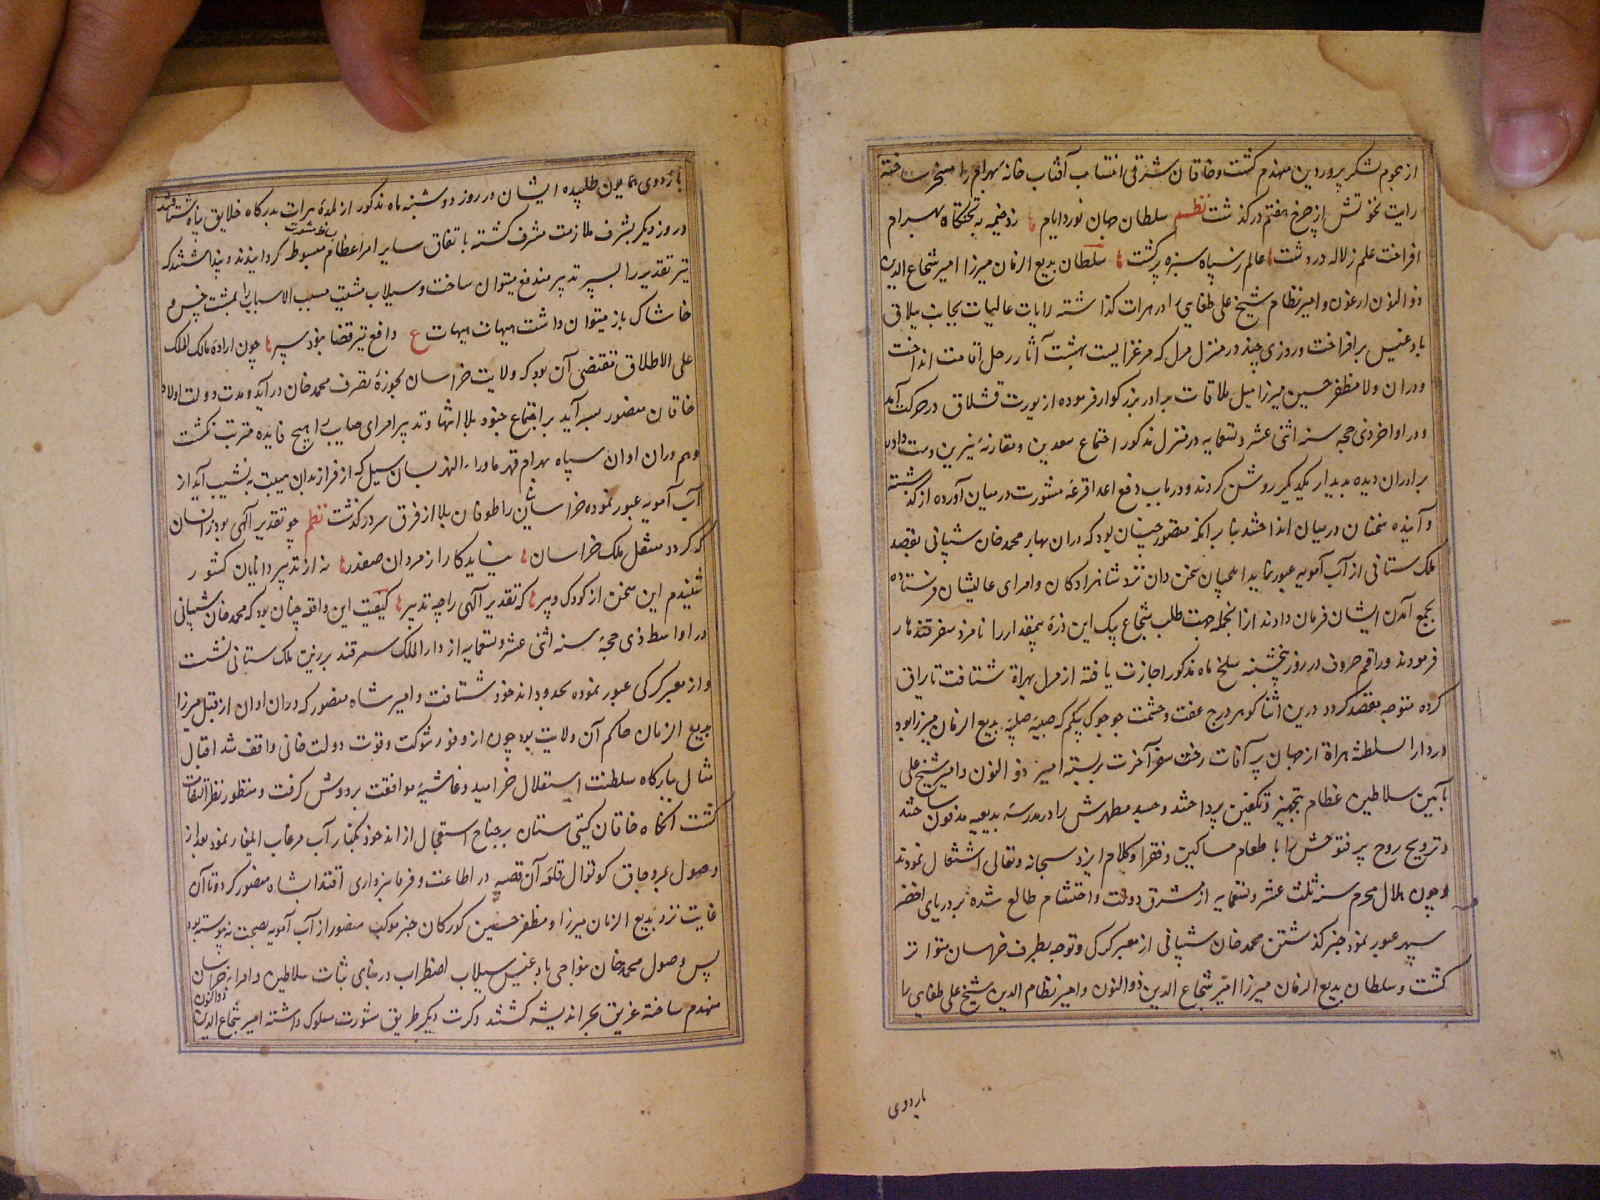 از هجوم لشکر پروردین منهدم گشت و خاقان شرقی انتساب آفتاب خانه بهرام را مسخر ساخته
رایت نخوتش از چرخ هفتم درگذشت نظم سلطان جهان نورد ایام زد خیمه به تختگاه بهرام
افراخت علم ز لاله در دشت عالم ز سپاه سبزه پر گشت سلطان بدیع الزمان میرزا امیر شجاع الدین
ذو النون ارغون و امیر نظام شیخ علی طغایی را در هرات گذاشته رایات عالیات بجانب ییلاق
بادغیس برافراخت و روزی چند در منزل مرل که مرغزاریست بهشت آثار رحل اقامت انداخت
و در آن ولا مظفر حسین میرزا میل ملاقات برادر بزرگوار فرموده از یورت قشلاق در حرکت آمد
و در اواخر ذی حجه سنه اثنی عشر و تسعمایه در منزل مذکور اجتماع سعدین و مقارنهٔ نیرین دست داده
برادران دیده بدیدار یکدیگر روشن کردند و در باب دفع اعدا قرعه مشورت در میان آورده از گذشته
و آینده سخنان در میان انداختند بنا بر آنکه متصور چنان بود که در آن بهار محمد خان شیبانی بقصد
ملک ستانی از آب آمویه عبور نماید ایلچیان سخن دان نزد شاهزادگان و امرای عالیشان فرستاده
بجمع آمدن ایشان فرمان دادند از انجمله جهت طلب شجاع بیک این ذرهٔ بیمقدار را نامزد سفر قندهار
فرمودند و راقم حروف در روز پنجشنبه سلخ ماه مذکور اجازت یافته از مرل بهراة شتافت تا یراق
کرده متوجه مقصد گردد درین اثنا گوهر درج عفت و حشمت جوجوک بیگم که صبیه صلبیه بدیع الزمان میرزا بود
در دار السلطنه هراة از جهان پر آفات رخت سفر آخرت بربسته امیر ذو النون و امیر شیخ علی
بآیین سلاطین عظام بتجهیز و تکفین پرداختند و جسد مطهرش را در مدرسه بدیعیه مدفون ساختند
و ترویح روح پر فتوحش را با طعام مساکین و فقرا و کلام ایزد سبحانه و تعالی اشتغال نمودند
و چون هلال محرم سنه ثلث عشر و تسعمایه از مشرق دولت و احتشام طالع شده بر دریای اخضر
سپهر عبور نمود خبر گذشتن محمد خان شیبانی از معبر کرکی و توجه بطرف خراسان متواتر
گشت و سلطان بدیع الزمان میرزا امیر شجاع الدین ذو النون و امیر نظام الدین شیخ علی طغایی را
باردوی
باردوی همایون طلبیده ایشان در روز دوشنبه ماه مذکور از بلدهٔ هرات بدرگاه خلایق پناه شتافتند
و روز دیگر بشرف ملازمت مشرف گشته باتفاق سایر امراء عظام بساط مشورت مبسوط گردانیدند و پنداشتند که
تیر تقدیر را بسپر تدبیر مندفع میتوان ساخت و سیلاب مشیت مسبب الاسباب را بمشت خس و
خاشاک باز میتوان داشت هیهات هیهات ع دافع تیر قضا نبود سپر چون اراده مالک الملک
علی الاطلاق مقتضی آن بود که ولایت خراسان بحوزهٔ تصرف محمد خان درآید و مدت دولت اولاد
خاقان منصور بسر آید بر اجتماع جنود بلا انتها و تدبیر امرای صایب رای هیچ فایده مترتب نگشت
و هم در آن اوان سپاه بهرام قهر ماوراء النهر بسان سیل که از فراز بدان مهیب به نشیب آید از
آب آمویه عبور نموده خراسانیان را طوفان بلا از فرق سر درگذشت نظم چو تقدیر الهی بود بر آنسان
که گردد منتقل ملک خراسان نیاید کار از مردان صفدر نه از تدبیر دانایان کشور
شنیدم این سخن از کودک و پیر که تقدیر الهی را چه تدبیر کیفیت این واقعه چنان بود که محمد خان شیبانی
در اواسط ذی حجهٔ سنه اثنی عشر و تسعمایه از دار الملک سمرقند بر زین ملک ستانی نشست
و از معبر کرکی عبور نموده بحدود اندخود شتافت و امیر شاه منصور که در آن اوان از قبل میرزا
بدیع الزمان حاکم آن ولایت بود چون از وفور شوکت و قوت دولت خانی واقف شد اقبال
مثال ببارگاه سلطنت استقلال خرامید و غاشیهٔ موافقت بر دوش گرفت و منظور نظر التفات
گشت آنگاه خاقان گیتی ستان بر جناح استعجال از اندخود بکنار آب مرغاب ایلغار نمود بعد از
وصول بمروچاق کوتوال قلعه آن قصبه در اطاعت و فرمانبرداری اقتدا بشاه منصور کرد و تا آن
غایت نزد بدیع الزمان میرزا و مظفر حسین گورکان خبر موکب منصور از آب آمویه بصحت نپیوسته بود
پس وصول محمد خان بنواحی بادغیس سیلاب اضطراب در بنای ثبات سلاطین و امراء خراسان
منهدم ساخته غریق بحر اندیشه گشتند و کرت دیگر طریق مشورت مسلوک داشته امیر شجاع الدین ذو النون